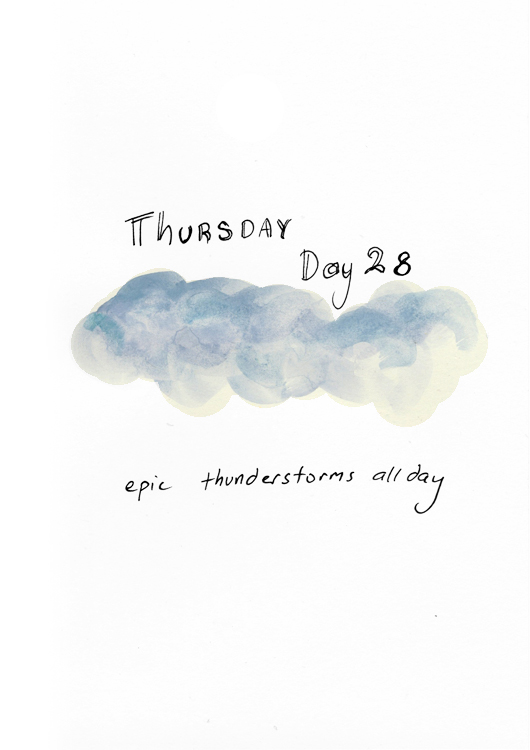 THURSDAY
Day 28
epic thunderstorms all day